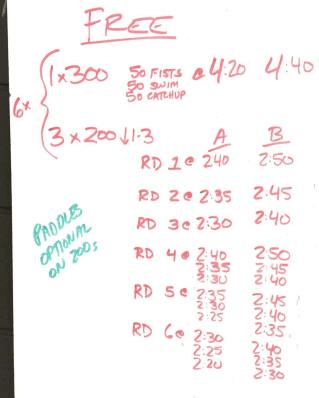 FREE
6x
1x300 50 FISTS @ 4:20 4:40
50 SWIM
50 CATCHUP
3 x 200 ↓1-3 A B
RD 1 @ 240 2:50
RD 2 @ 2:35 2:45
RD 3 @ 2:30 2:40
RD 4 @ 2:40 2:50
2:35 2:45
2:30 2:40
RD 5 @ 2:35 2:45
2:30 2:40
2:25 2:35
RD 6 @ 2:30 2:40
2:25 2:35
2:20 2:30
PADDLES
OPTIONAL
ON 200s